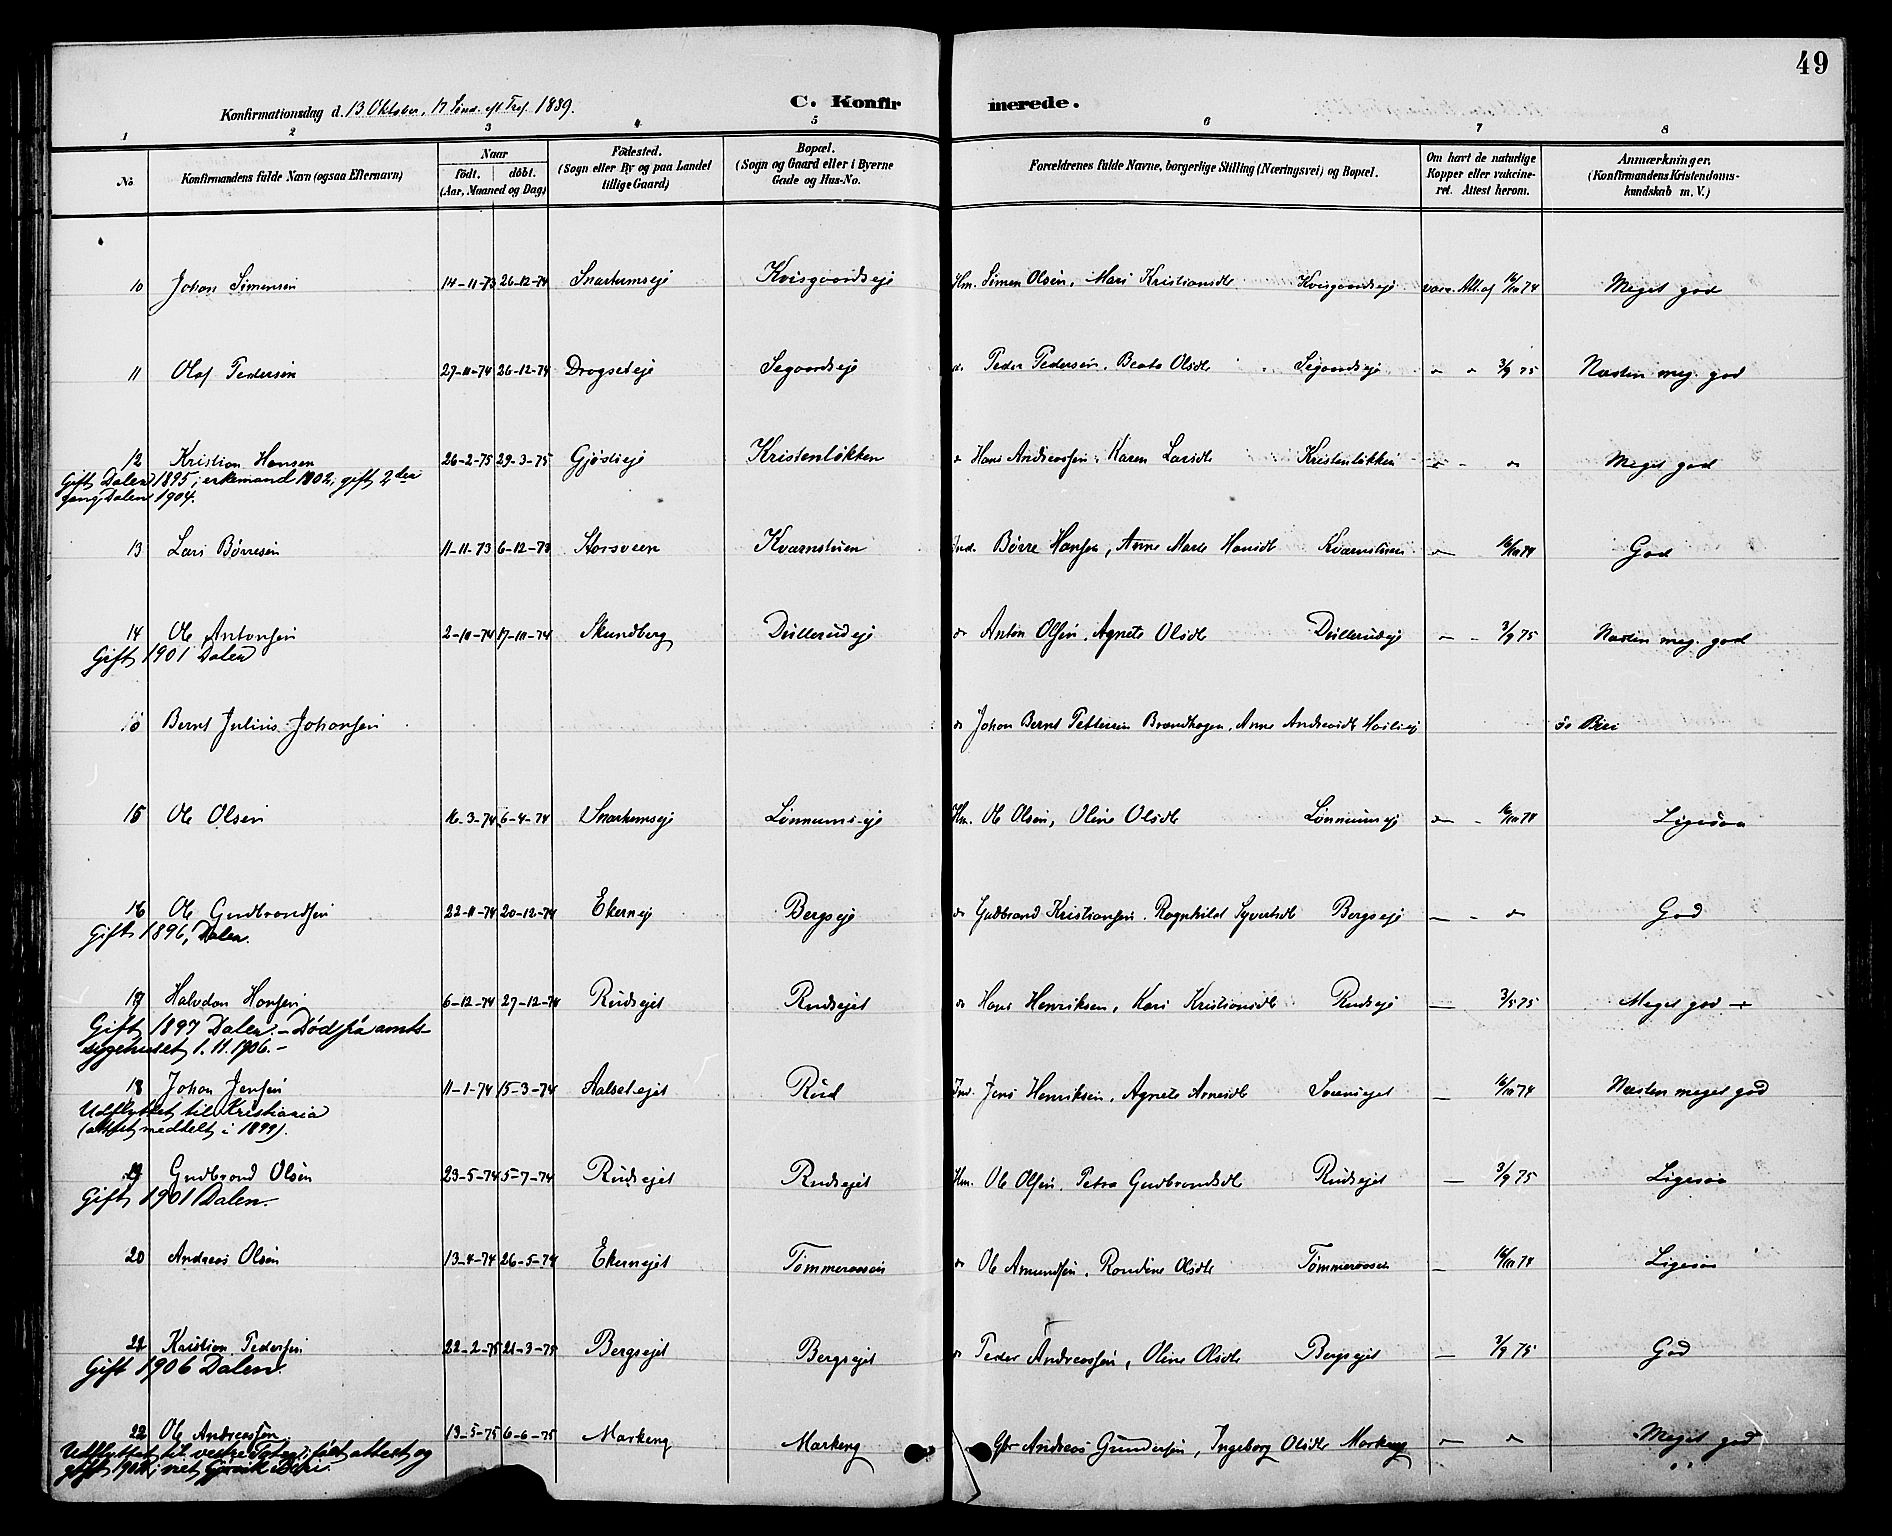 49
Konfirmationsdag d. 13 Oktober, 17 Sönd. eft. Tref. 1889.
C. Konfirmerede.
1 2 3 4 5 6 7 8
No
Konfirmandens fulde Navn (ogsaa Efternavn)
Naar
født. døbt.
(Aar, Maaned og Dag)
Fødested.
(Sogn eller By og paa Landet
tillige Gaard)
Bopæl.
(Sogn og Gaard eller i Byerne
Gade og Hus-No.
Forældrenes fulde Navne, borgerlige Stilling (Næringsvei) og Bopæl.
Om havt de naturlige
Kopper eller vakcine-
ret. Attest herom.
Anmærkninger.
(Konfirmandens Kristendoms-
kundskab m. V.)
10 Johan Simensen 14-11-73 26-12-74 Snartumseje Kvisgaardseje Hm. Simen Olsen, Mari Kristiansdt. Kvisgaardseje vacc. Att. af 16/10 74 Meget god
11 Olaf Pedersen 27-11-74 26-12-74 Drogseteje Segaardseje do Peder Pedersen, Beate Olsdt. Segaardseje 3/9 75 Næsten meg. god
12 Kristian Hansen 26-2-75 29-3-75 Gjødseje Kristenløkken do Hans Andreassen, Karen Larsdt. Kristenløkken do Meget god
Gift Dalen 1895; enkemand 1902, gift 2den
gang Dalen 1904.
13 Lars Börresen 11-11-73 6-12-73 Storsveen Kværnstuen Ind. Börre Hansen, Anne Marte Hansdt. Kværnstuen 16/10 74 God
14 Ole Antonsen 2-10-74 17-10-74 Skundberg Dullerudeje do Anton Olsen, Agnete Olsdt. Dullerudeje 3/9 75 Næsten meg. god
Gift 1901 Dalen
Bernt Julius Johansen do Johan Bernt Pettersen Brandhagen, Anne Andreasdt. Biri
15 Ole Olsen 16-3-74 6-4-74 Snartumseje Lönnumseje Hm. Ole Olsen, Oline Olsdt. Lönnumseje 16/10 74 Ligesaa
16 Ole Gudbrandsen 22-11-74 20-12-74 Ekerneje Bergseje do Gudbrand Kristiansen, Ragnhild Syversdt. Bergseje do God
Gift 1896, Dalen.
17 Halvdan Hansen 6-12-74 27-12-74 Rudsejet Rudsejet do Hans Henriksen, Kari Kristiansdt. Rudseje 3/5 75 Meget god -
Gift 1897 Dalen. - Död på amts-
sygehuset 1.11.1906. -
18 Johan Jensen 11-1-74 15-3-74 Aalsetejet Rud Ind. Jens Henriksen, Agnete Arnesdt. Sveensejet 16/10 74 Næsten meget god
Udflyttet til Kristiania
(attest meddelt i 1899).
19 Gudbrand Olsen 23-5-74 5-7-74 Rudsejet Rudsejet Hm. Ole Olsen, Petra Gudbrandsdt. Rudsejet 3/9 75 Ligesaa
Gift 1901 Dalen.
20 Andreas Olsen 13-4-74 26-5-74 Ekernejet Tömmeraasen do Ole Amundsen, Rondine Olsdt. Tömmeraasen 16/10 74 Ligesaa
21 Kristian Pedersen 22-2-75 21-3-75 Bergsejet Bergsejet do Peder Andreassen, Oline Olsdt. Bergsejet 3/9 75 God
Gift 1906 Dalen.
22 Ole Andreassen 13-5-75 6-6-75 Markeng Markeng Gbr Andreas Gundersen, Ingeborg Olsdt. Markeng do Meget god
Udflyttet til vestre Toten; født attest og
gift